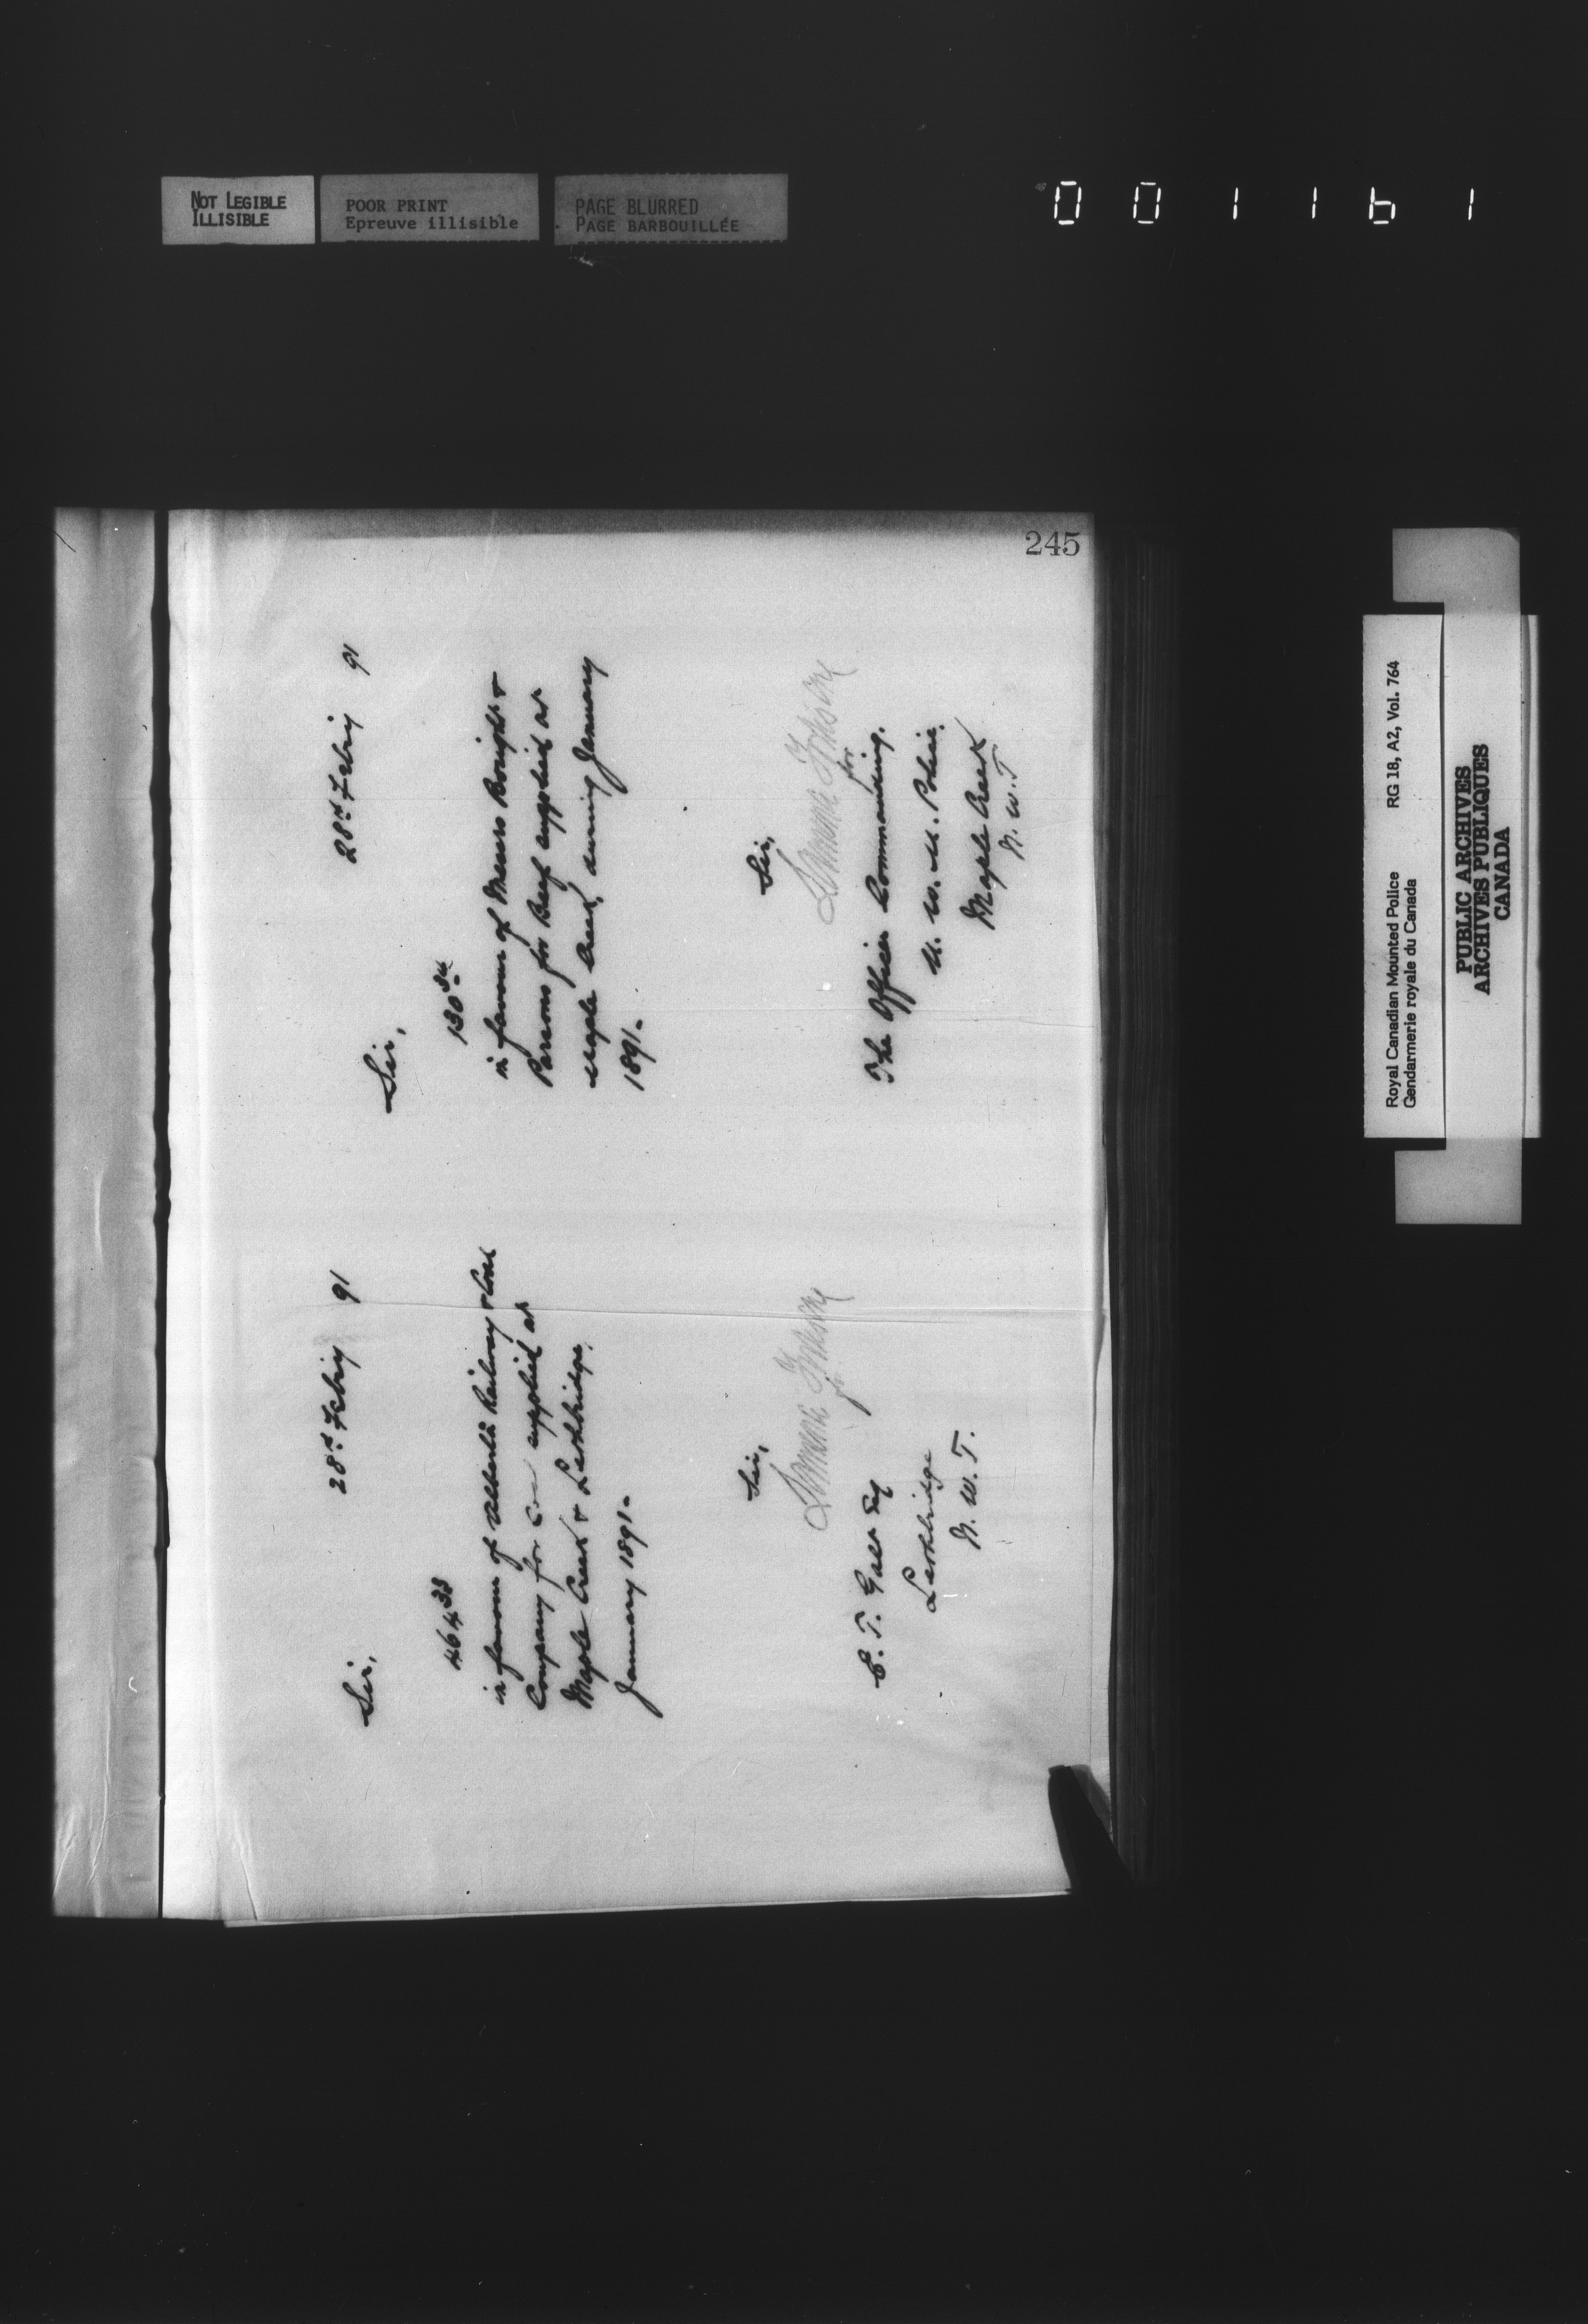 NOT LEGIBLE
ILLISIBLE
POOR PRINT
Epreuve illisible
PAGE BLURRED
PAGE BARBOUILLÉE
001161
245
28th Feby 91
Sir,
464 33
in favour of Alberta Railway & Coal
Company for supplied at
Maple Creek & Lethbridge,
January 1891-
Sir,
for
E. T. Galt Esq
Lethbridge
N. W. T.
28th Feby 91
Sir,
130
in favour of Messrs &
Parsons for Beef supplied at
Maple Creek, during January
1891-
Sir,
for
The Officer Commanding,
N. W. M. Police.
Maple Creek
N. W. T
Royal Canadian Mounted Police RG 18, A2, Vol. 764
Gendarmerie royale du Canada
PUBLIC ARCHIVES
ARCHIVES PUBLIQUES
CANADA